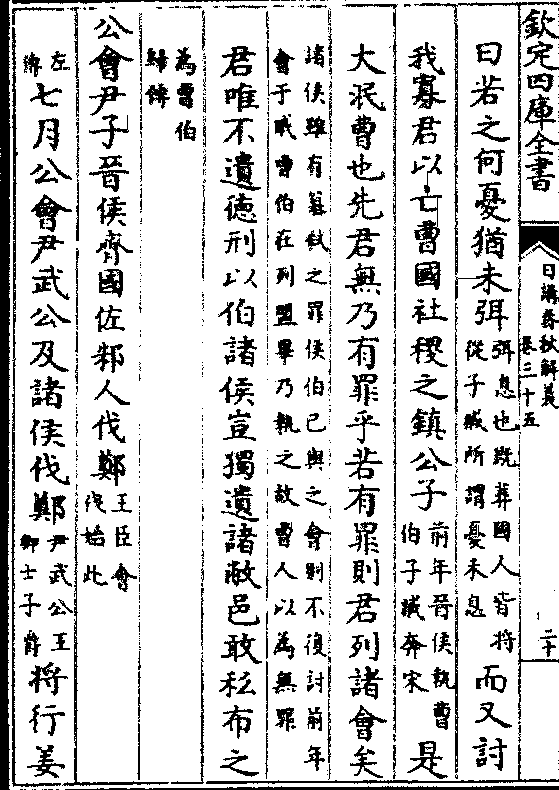 欽定四庫全書
日講春秋解義
卷三十五
二十
曰若之何憂猶未弭弭息也既葬國人皆將從子臧所謂憂未息而又討
我寡君以亡曹國社稷之鎮公子前年晉侯執曹伯子臧奔宋是
大泯曹也先君無乃有罪乎若有罪則君列諸會矣
諸侯雖有簒弒之罪侯伯已與之會則不復討前年會于戚曹伯在列盟畢乃執之故曹人以為無罪
君唯不遺德刑以伯諸侯豈獨遺諸敝邑敢私布之
為曹伯歸傳
公會尹子晉侯齊國佐邾人伐鄭王臣會伐始此
左傳七月公會尹武公及諸侯伐鄭尹武公王卿士子爵將行姜